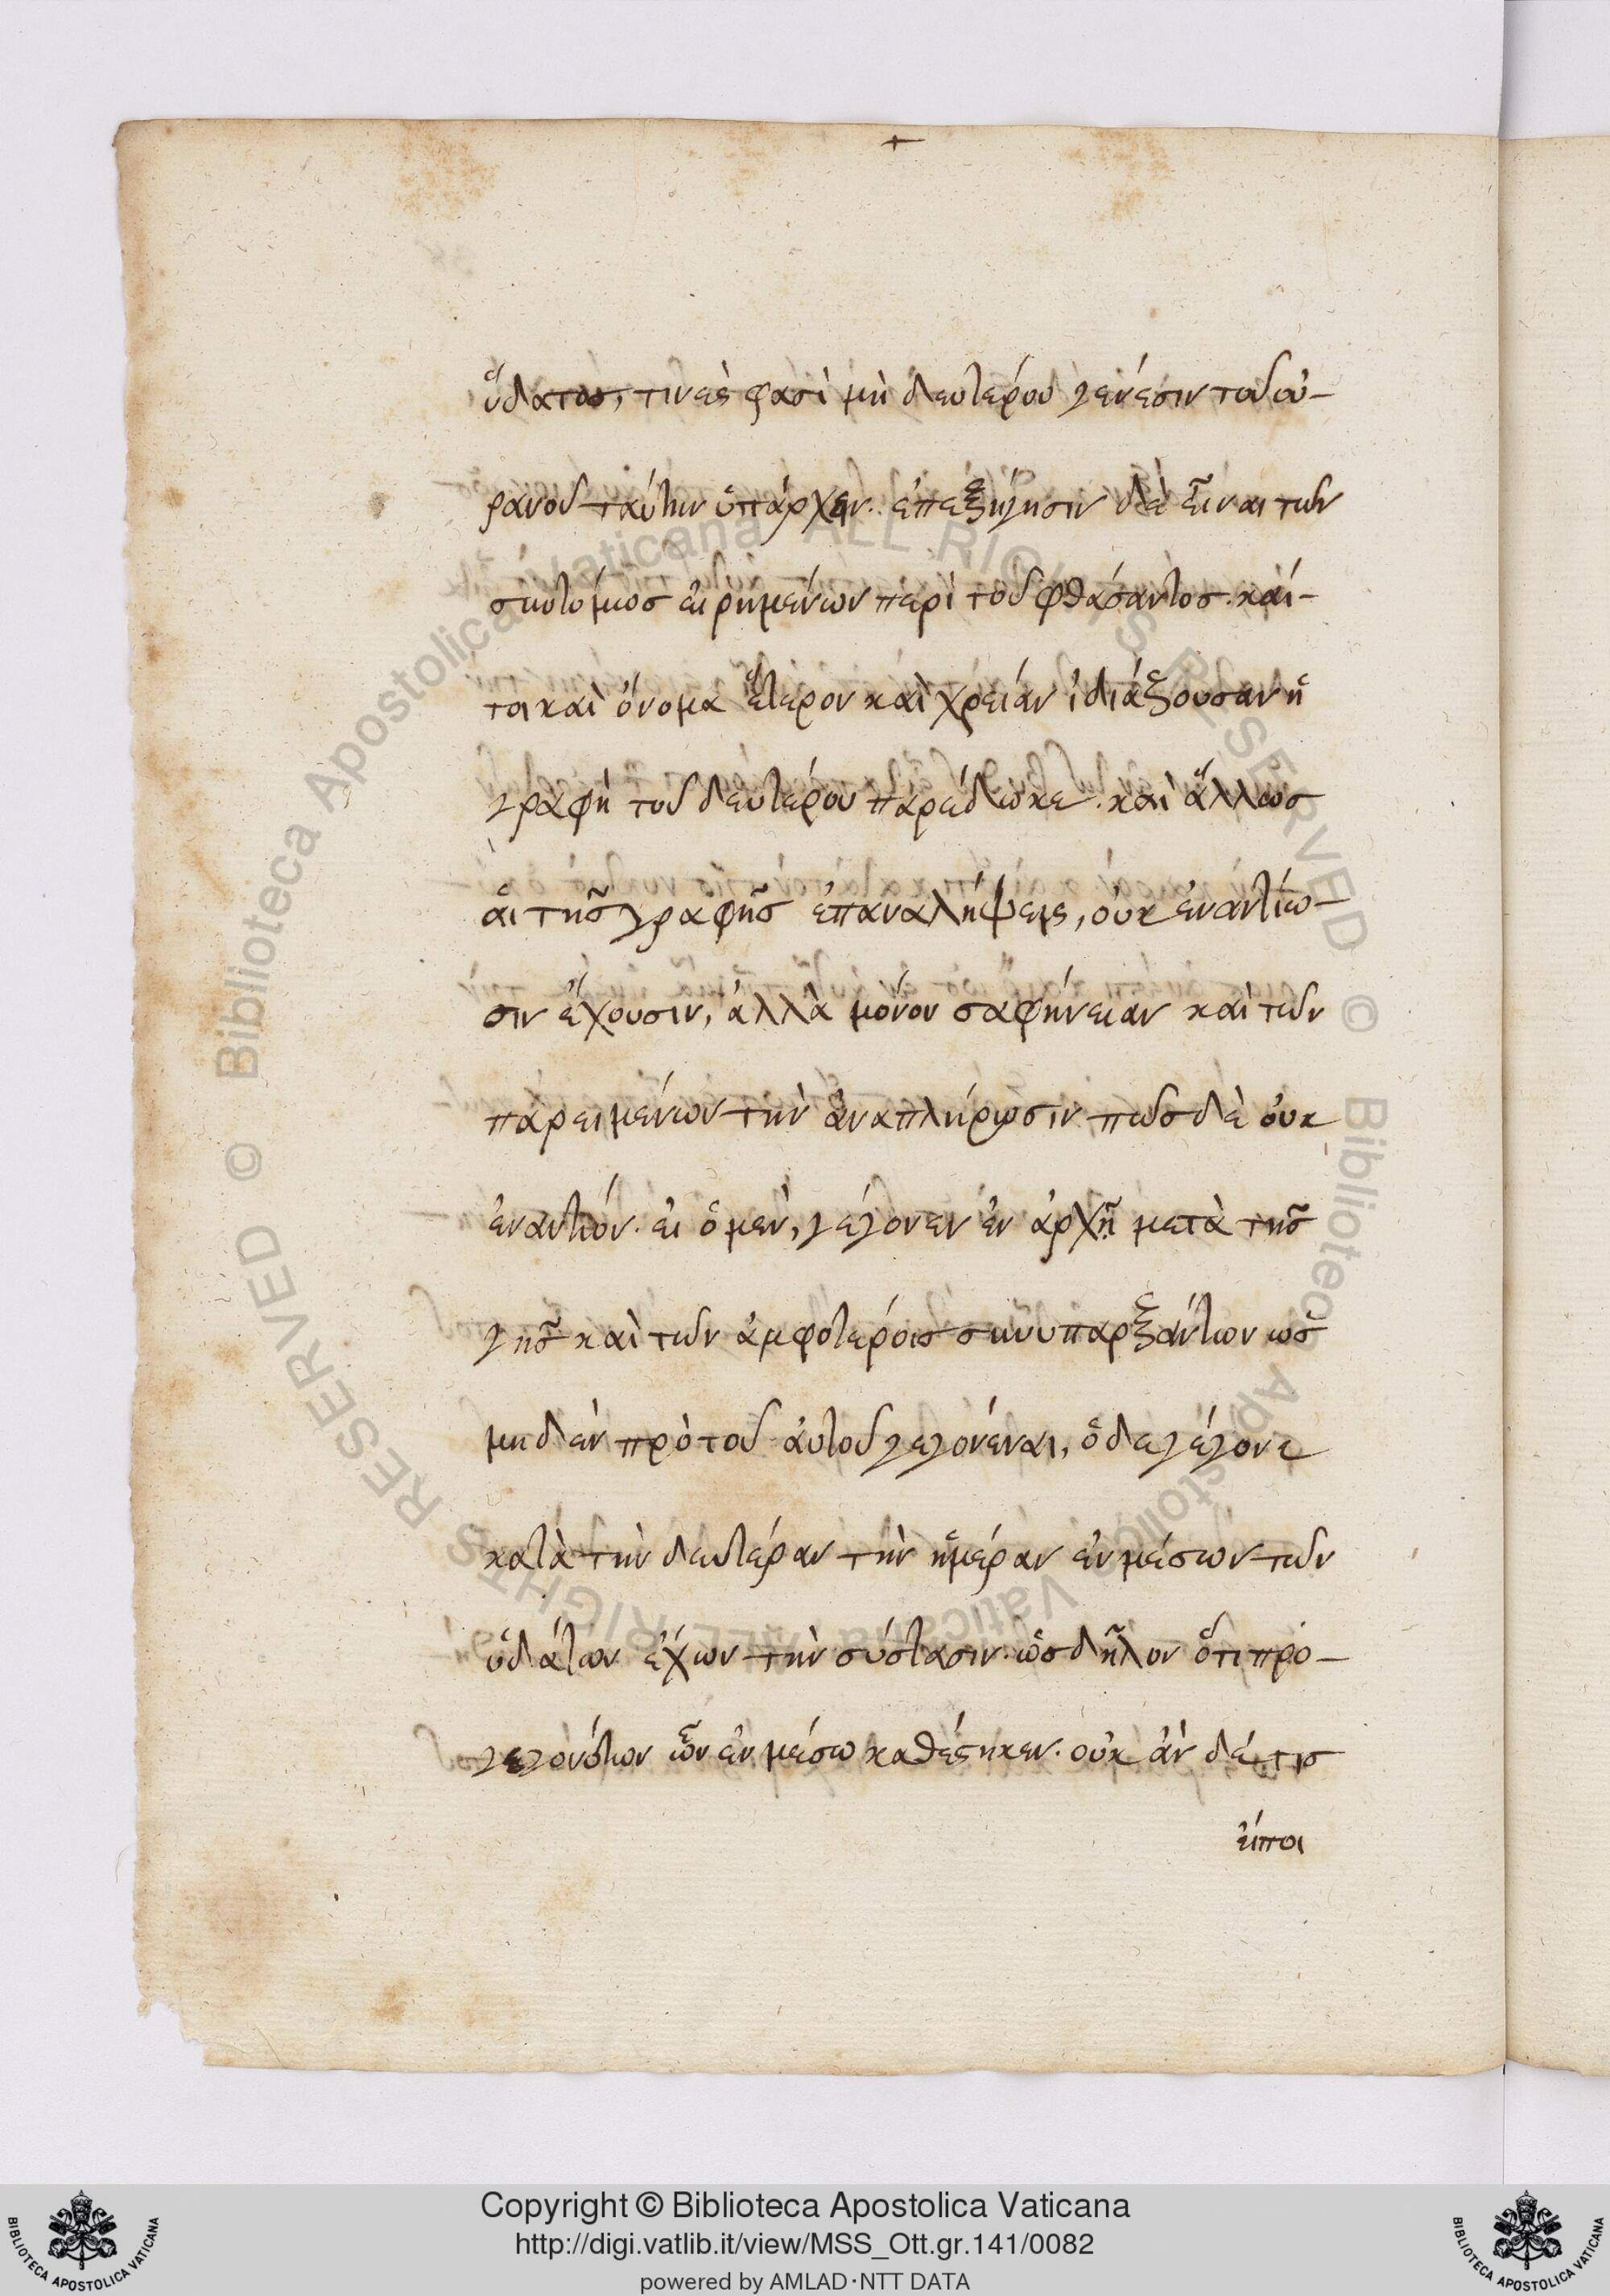 ὕδατος, τινὲς φασὶ μὴ δευτέρου γενέσιν τοῦ οὐ-
ρανοῦ ταύτην ὑπάρχειν. ἐπεξήγησιν δὲ εἶναι τῶν
συντόμος εἰρημένων περὶ τοῦ φθάσαντος. καί-
τοι καὶ ὄνομα ἕτερον καὶ χρείαν ἰδιάζουσαν ἡ
γραφὴ τοῦ δευτέρου παρέδωκε. καὶ ἄλλως
αἱ τῆς γραφῆς ἐπαναλήψεις, οὐκ ἐναντίω-
σιν ἔχουσιν, ἀλλὰ μόνον σαφήνειαν καὶ τῶν
παρειμένων τὴν ἀναπλήρωσιν πῶς δὲ οὐκ
ἐναντίον. εἰ ὁ μὲν, γέγονεν ἐν ἀρχῇ μετὰ τῆς
γῆς καὶ τῶν ἀμφοτέροις συνυπαρξάντων ὡς
μηδὲν πρὸ τοῦ αὐτοῦ γεγονέναι, ὁ δὲ γέγονε
κατὰ τὴν δευτέραν τὴν ἡμέραν ἐν μέσων τῶν
ὑδάτων ἔχων τὴν σύστασιν. ὡς δῆλον ὅτι προ-
γεγονότων ὧν ἐν μέσω καθέστηκεν. οὐκ ἂν δέ τις
εἴποι
Copyright © Biblioteca Apostolica Vaticana
http://digi.vatlib.it/view/MSS_Ott.gr.141/0082
powered by AMLAD·NTT DATA
BIBLIOTECA APOSTOLICA VATICANA
BIBLIOTECA APOSTOLICA VATICANA
© Biblioteca Apostolica Vaticana ALL RIGHTS RESERVED © Biblioteca Apostolica Vaticana ALL RIGHTS RESERVED